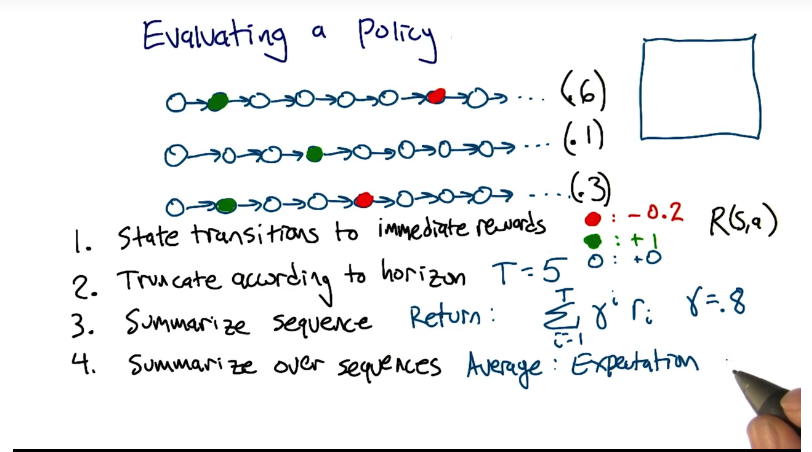 Evaluating a Policy
... (.6)
... (.1)
.... (.3)
1. State transitions to immediate rewards
: -0.2 R(s,a)
: +1
: +0
2. Truncate according to horizon T=5
3. Summarize sequence Return: Σ_{i=1}^{T} γ^i r_i γ=.8
4. Summarize over sequences Average: Expectation